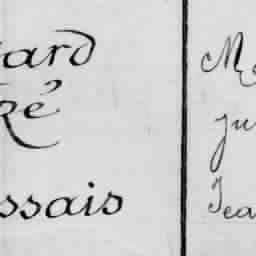 ard
Ré
ssais
Me
ju
Jea